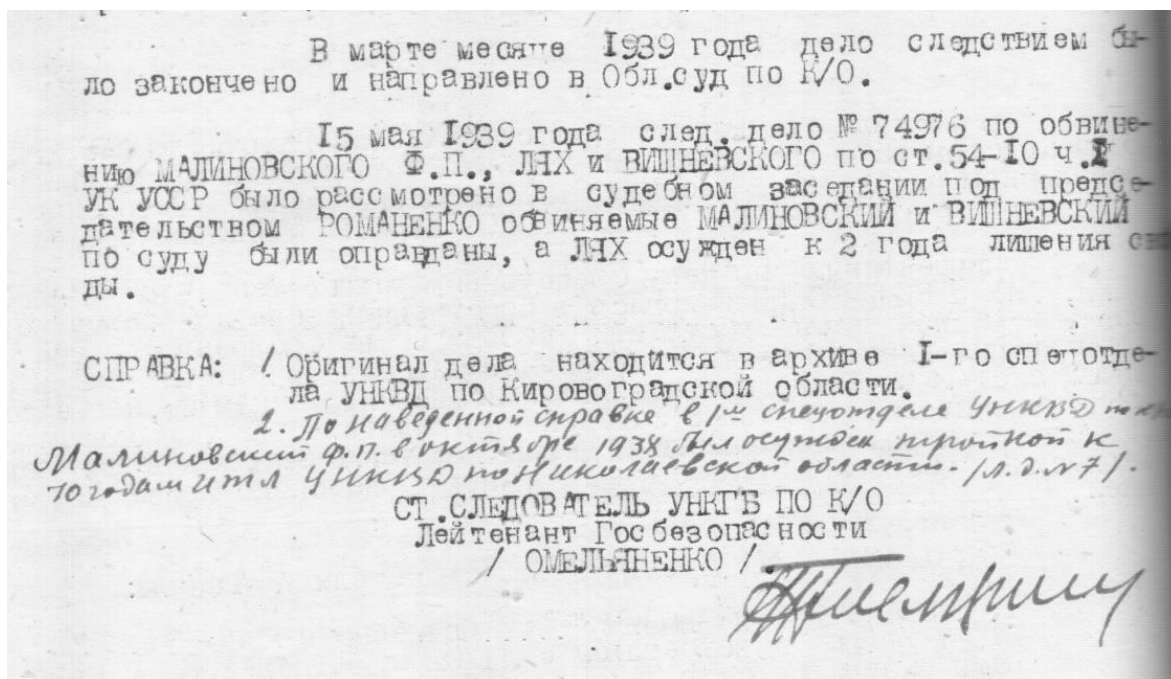 В марте месяце 1939 года дело следствием бы-
ло закончено и направлено в Обл.суд по К/О.
15 мая 1939 года след. дело № 74976 по обвине-
нию МАЛИНОВСКОГО Ф.П., ЛЯХ и ВИШНЕВСКОГО по ст.54-10 ч.I
УК УССР было рассмотрено в судебном заседании под предсе-
дательством РОМАНЕНКО обвиняемые МАЛИНОВСКИЙ и ВИШНЕВСКИЙ
по суду были оправданы, а ЛЯХ осужден к 2 года лишения сво
ды.
СПРАВКА: / Оригинал дела находится в архиве I-го спецотде-
ла УНКВД по Кировоградской области.
2. По наведенной справке в 1м спецотделе УНКВД по к/о
Малиновский Ф.П. в октябре 1938 был осужден тройкой к
10 годам ИТЛ УНКВД по Николаевской области. /л.д.№7/.
СТ.СЛЕДОВАТЕЛЬ УНКГБ ПО К/О
Лейтенант Госбезопасности
/ ОМЕЛЬЯНЕНКО /.